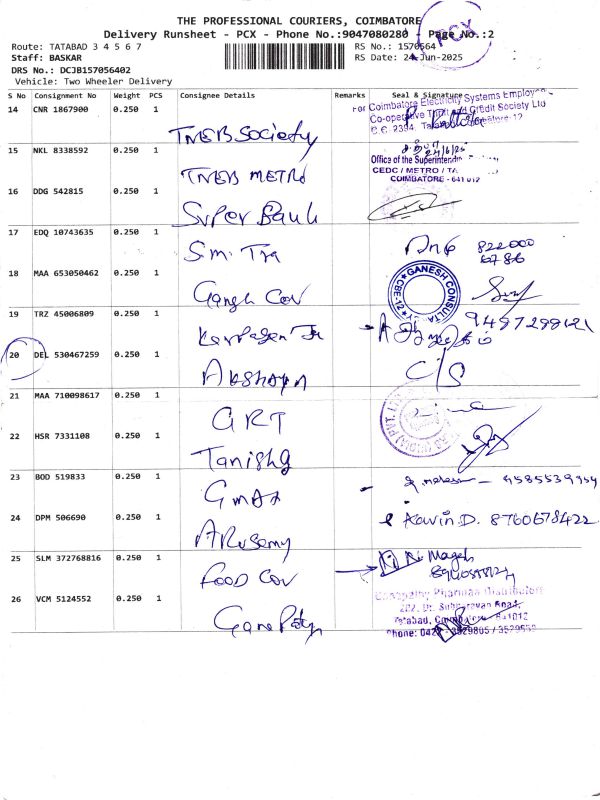 THE PROFESSIONAL COURIERS, COIMBATORE
Delivery Runsheet - PCX - Phone No.:9047080280 - Page No.:2
PCX
Route: TATABAD 3 4 5 6 7
RS No.: 1570564
Staff: BASKAR
RS Date: 24-Jun-2025
DRS No.: DCJB157056402
Vehicle: Two Wheeler Delivery
S No Consignment No Weight PCS Consignee Details Remarks Seal & Signature
14 CNR 1867900 0.250 1 TNEB Society
For Coimbatore Electricity Systems Employees
Co-operative Thrift and Credit Society Ltd
C.C. 2394, Coimbatore-12
15 NKL 8338592 0.250 1 TNEB METRO
24/6/25
Office of the Superintending
CEDC / METRO / TA
COIMBATORE - 641 012
16 DDG 542815 0.250 1 Super Bank
17 EDQ 10743635 0.250 1 S.m. Tra
18 MAA 653050462 0.250 1 Gangh Cov
GANESH CONSULTA
CBE-12
19 TRZ 45006809 0.250 1
20 DEL 530467259 0.250 1 Akshaya C/S
21 MAA 710098617 0.250 1 GRT
22 HSR 7331108 0.250 1 Tanishq
23 BOD 519833 0.250 1 GMAX
24 DPM 506690 0.250 1 Kavin.D. 8760678422
25 SLM 372768816 0.250 1 FOOD Cov
26 VCM 5124552 0.250 1
Ganapathy Pharmaa Distributors
202, Dr. Subbarayan Road,
Tatabad, Coimbatore - 641012
Phone: 0422 - 3529805